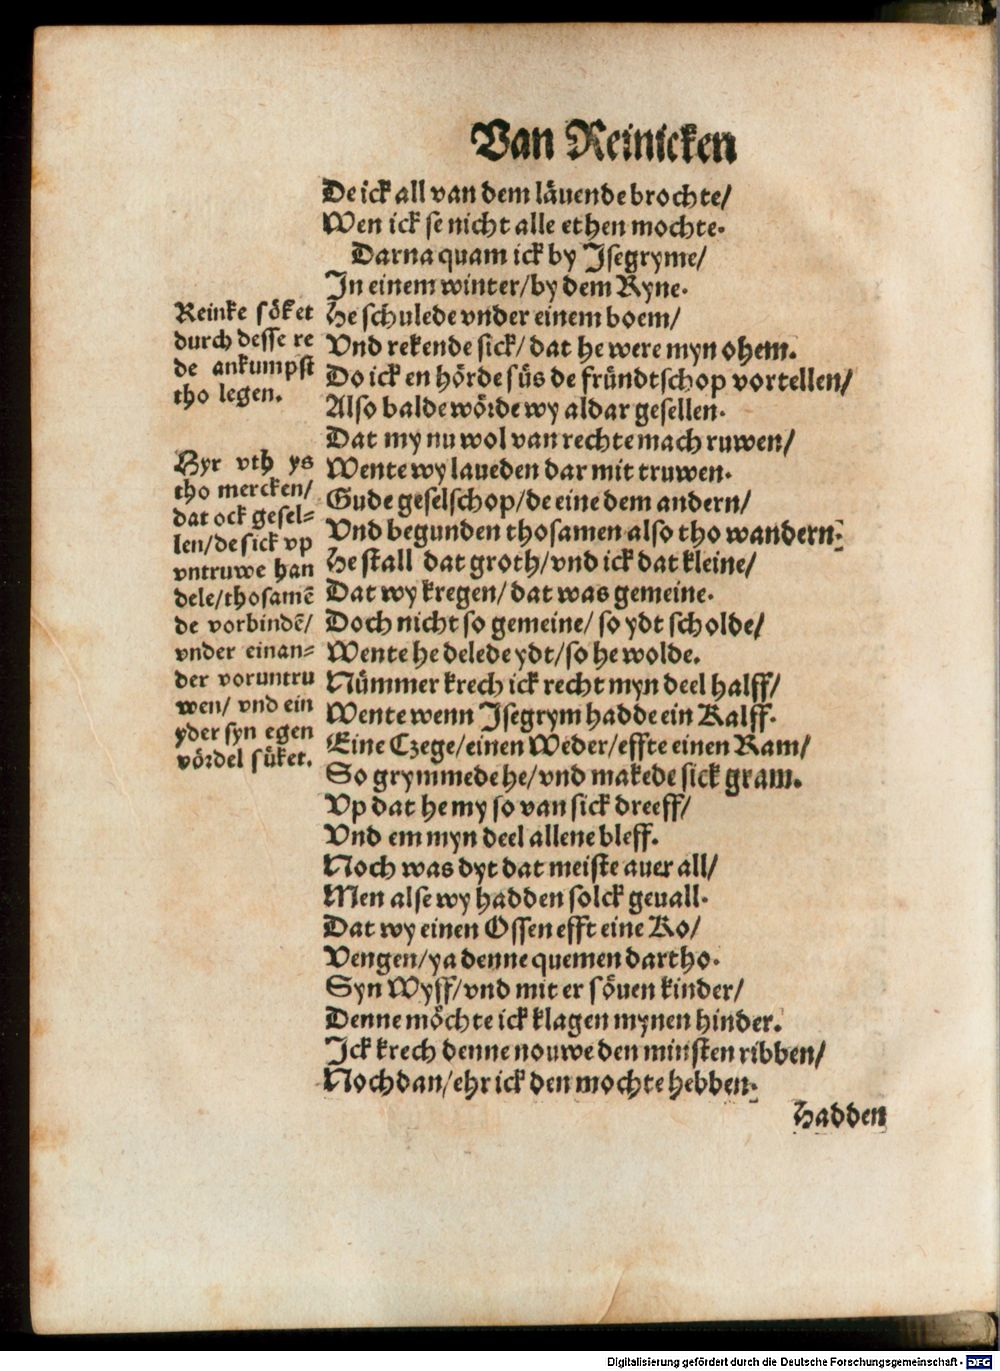 Van Reinicken
De ick all van dem läuende brochte/
Wen ick se nicht alle ethen mochte.
Darna quam ick by Isegryme/
In einem winter/by dem Ryne.
He schulede vnder einem boem/
Vnd rekende sick/ dat he were myn ohem.
Do ick en hörde süs de fründtschop vortellen/
Also balde wörde wy aldar gesellen.
Dat my nu wol van rechte mach ruwen/
Wente wy laueden dar mit truwen.
Gude geselschop/de eine dem andern/
Vnd begunden thosamen also tho wandern.
He stall dat groth/vnd ick dat kleine/
Dat wy kregen/ dat was gemeine.
Doch nicht so gemeine/ so ydt scholde/
Wente he delede ydt/so he wolde.
Nümmer krech ick recht myn deel halff/
Wente wenn Isegrym hadde ein Kalff.
Eine Czege/einen Weder/effte einen Ram/
So grymmede he/vnd makede sick gram.
Vp dat he my so van sick dreeff/
Vnd em myn deel allene bleff.
Noch was dyt dat meiste auer all/
Men alse wy hadden solck geuall.
Dat wy einen Ossen efft eine Ko/
Vengen/ya denne quemen dartho.
Syn Wyff/vnd mit er söuen kinder/
Denne möchte ick klagen mynen hinder.
Ick krech denne nouwe den minsten ribben/
Nochdan/ehr ick den mochte hebben.
Hadden
Reinke söket
durch desse re
de ankumpst
tho legen.
Hyr vth ys
tho mercken/
dat ock gesel=
len/de sick vp
vntruwe han
dele/thosamē
de vorbindē/
vnder einan=
der voruntru
wen/ vnd ein
yder syn egen
vördel süket.
Digitalisierung gefördert durch die Deutsche Forschungsgemeinschaft - DFG